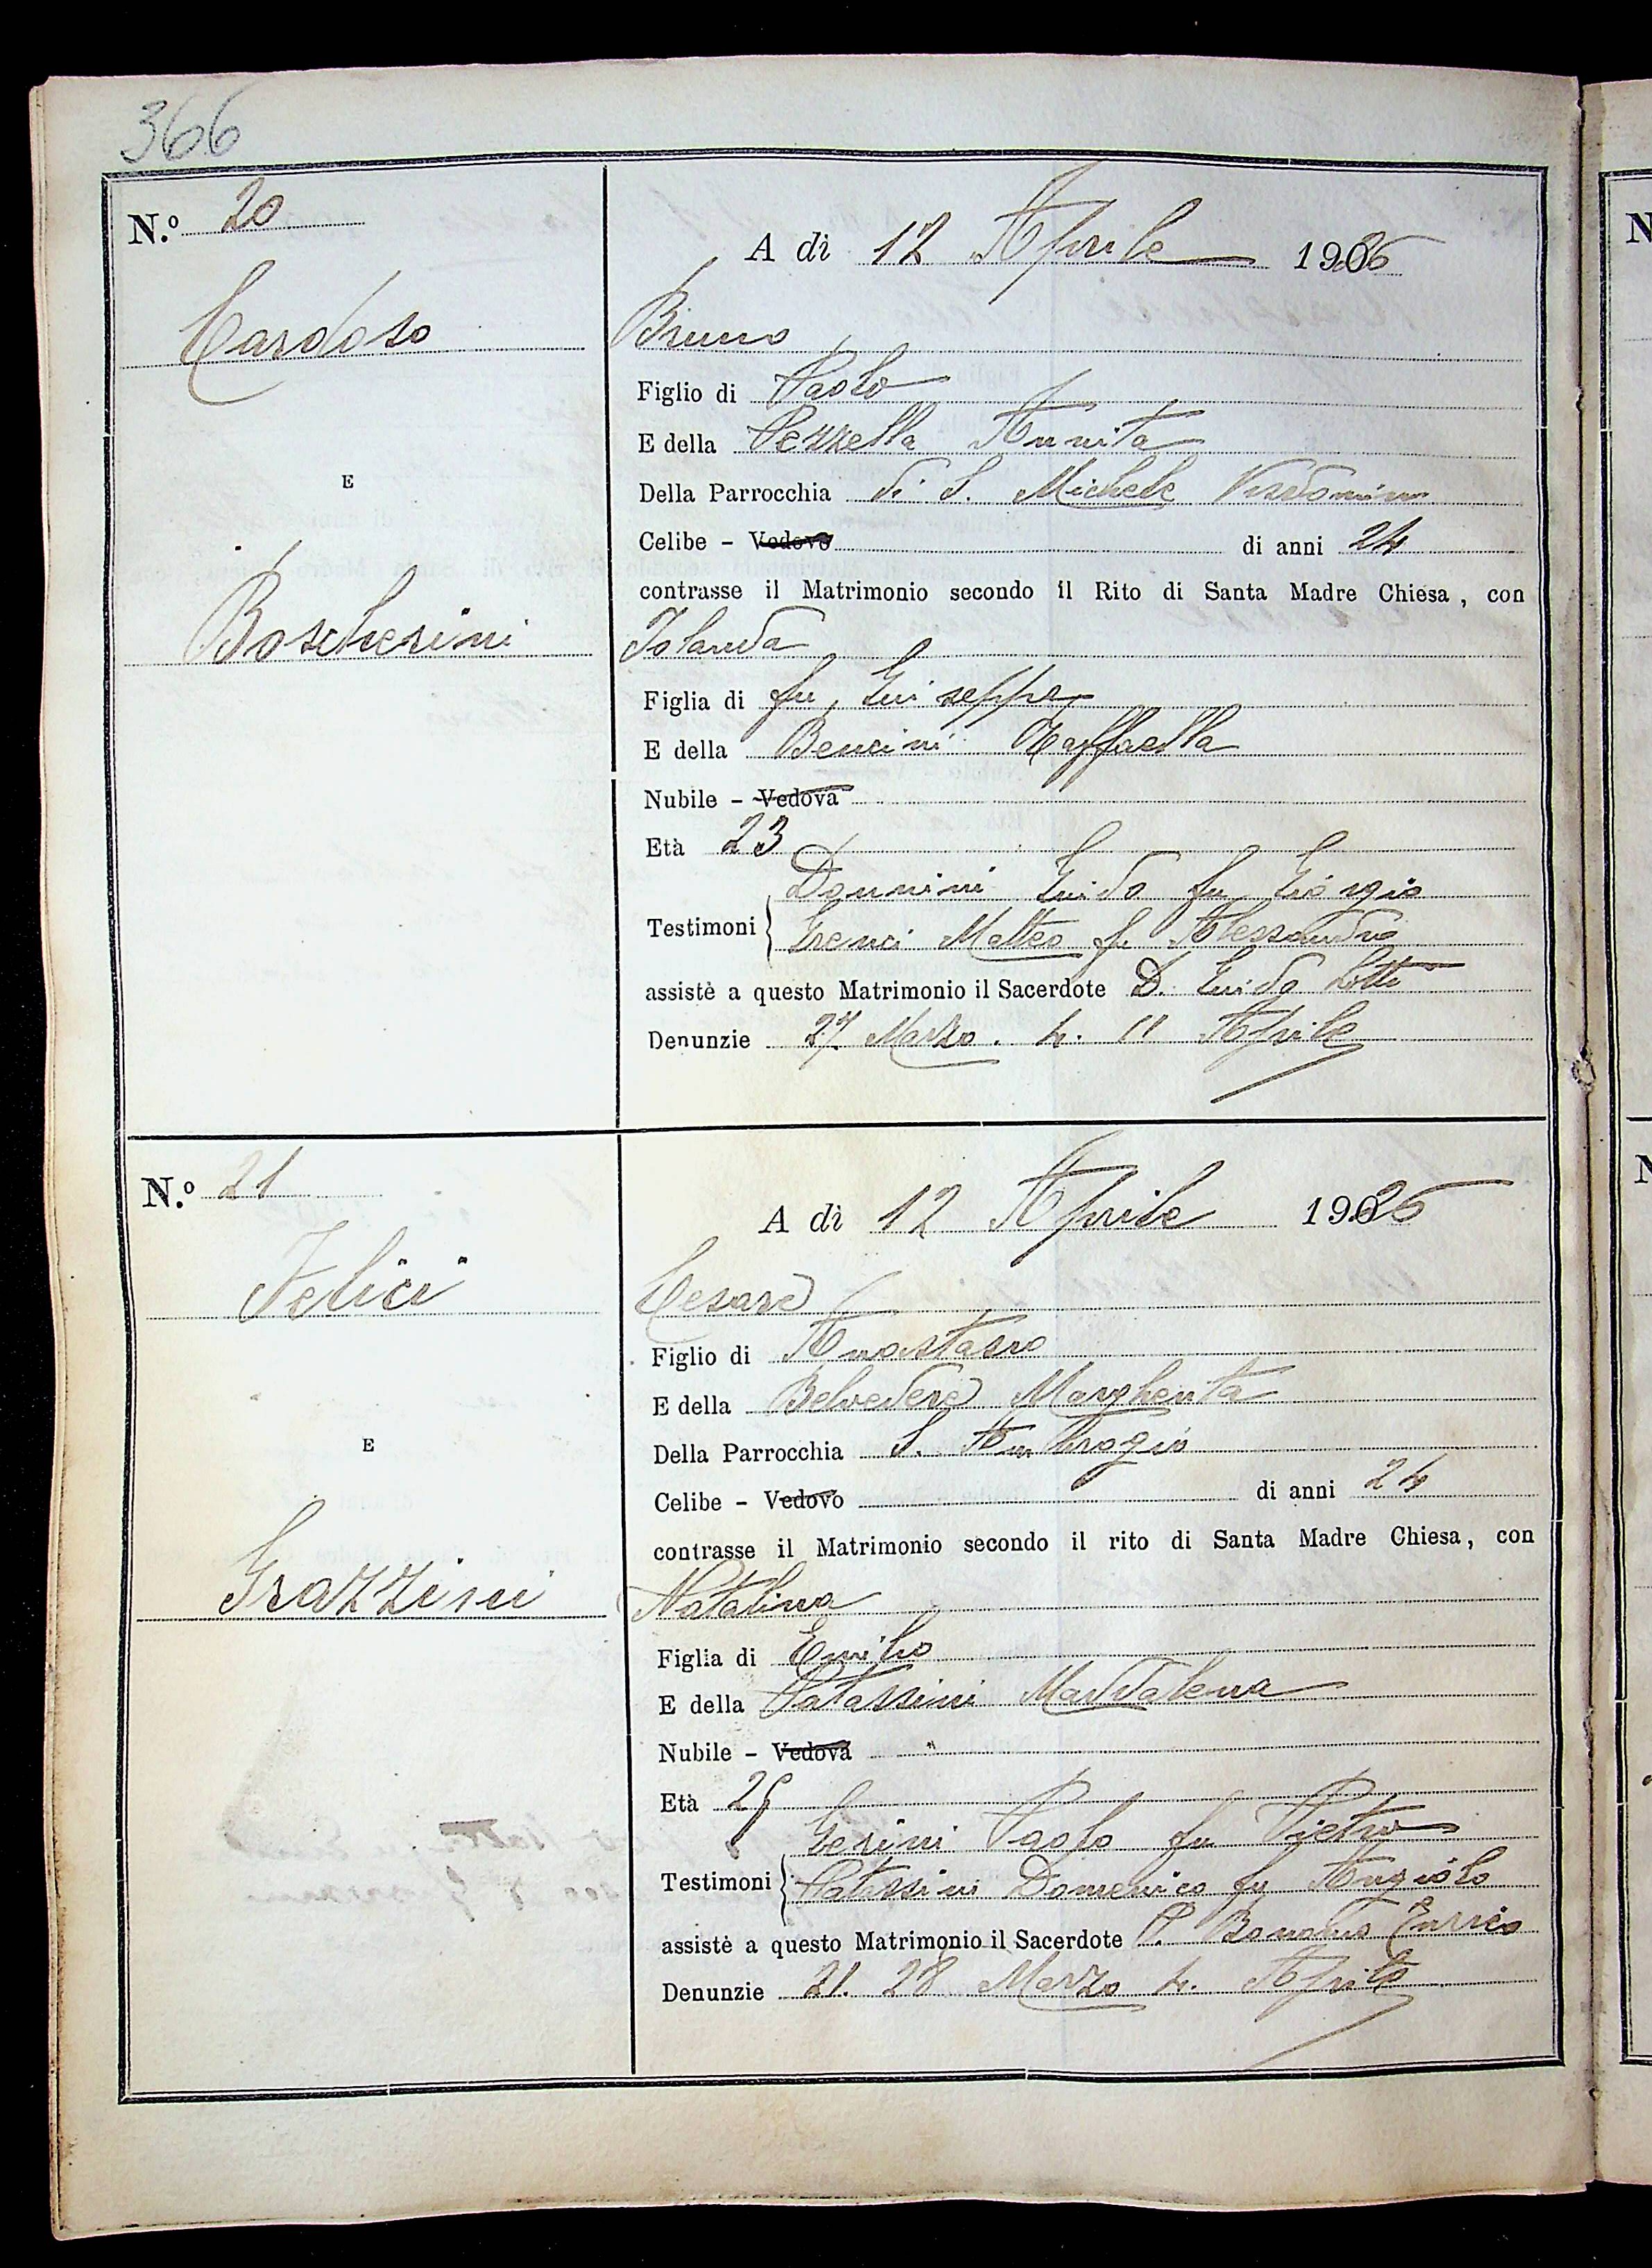 366
N.º 20
A dì 12 Aprile 1926
Cardoso
Bruno
Figlio di Paolo
E della Pezzella Annita
Della Parrocchia di S. Michele Visdomini
E
Celibe - Vedovo di anni 24
contrasse il Matrimonio secondo il Rito di Santa Madre Chiesa, con
Boscherini
Iolanda
Figlia di fu Giuseppe
E della Bencini Raffaella
Nubile - Vedova
Età 23
Donnini Guido fu Giorgio
Testimoni Grenci Matteo fu Alessandro
assistè a questo Matrimonio il Sacerdote D. Guido Lotti
Denunzie 27 Marzo. 4. 11 Aprile
N.º 21
A dì 12 Aprile 1926
Felici
Cesare
Figlio di Anastasio
E della Belvedere Margherita
Della Parrocchia S. Ambrogio
E
Celibe - Vedovo di anni 24
contrasse il Matrimonio secondo il rito di Santa Madre Chiesa, con
Grazzini
Natalina
Figlia di Emilio
E della Patassini Maddalena
Nubile - Vedova
Età 25
Gerini Paolo fu Pietro
Testimoni Patassini Domenico fu Angiolo
assistè a questo Matrimonio il Sacerdote P. Enrico
Denunzie 21. 28 Marzo 4. Aprile
N
N